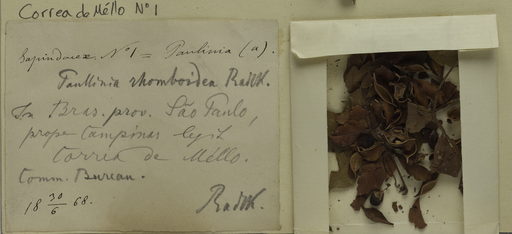 Correa de Méllo Nº 1
Sapindaceæ Nº 1 = Paulinia (a).
Paullinia rhomboidea Radlk.
In Bras. prov. São Paulo,
prope Campinas legit
Correa de Méllo.
Comm. Bureau.
18 30/6 68.
Radlk.